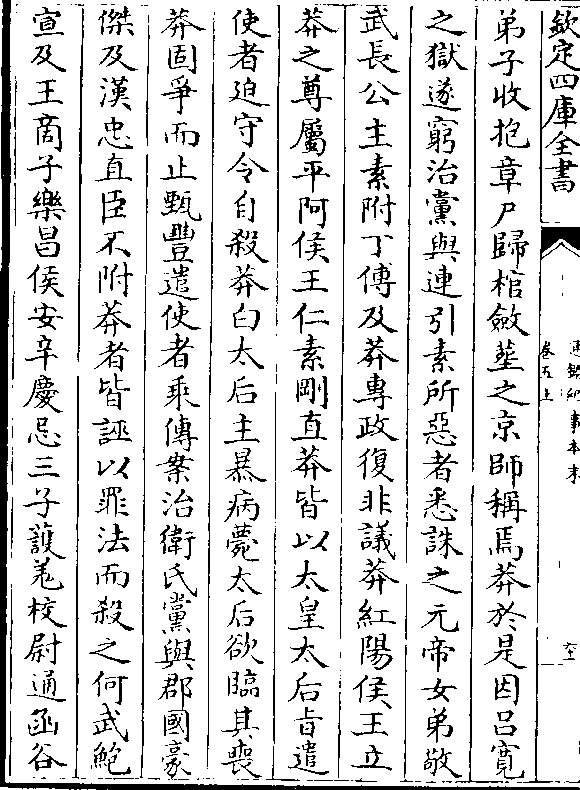 欽定四庫全書
通鑑紀事本末
卷五上
弟子收抱章尸歸棺斂塟之京師稱焉莽於是因吕寛
之獄遂窮治黨與連引素所惡者悉誅之元帝女弟敬
武長公主素附丁傅及莽專政復非議莽紅陽侯王立
莽之尊屬平阿侯王仁素剛直莽皆以太皇太后㫖遣
使者迫守令自殺莽白太后主暴病薨太后欲臨其喪
莽固爭而止甄豐遣使者乗傳案治衛氏黨與郡國豪
傑及漢忠直臣不附莽者皆誣以罪法而殺之何武鮑
宣及王商子樂昌侯安辛慶忌三子䕶羌校尉通函谷